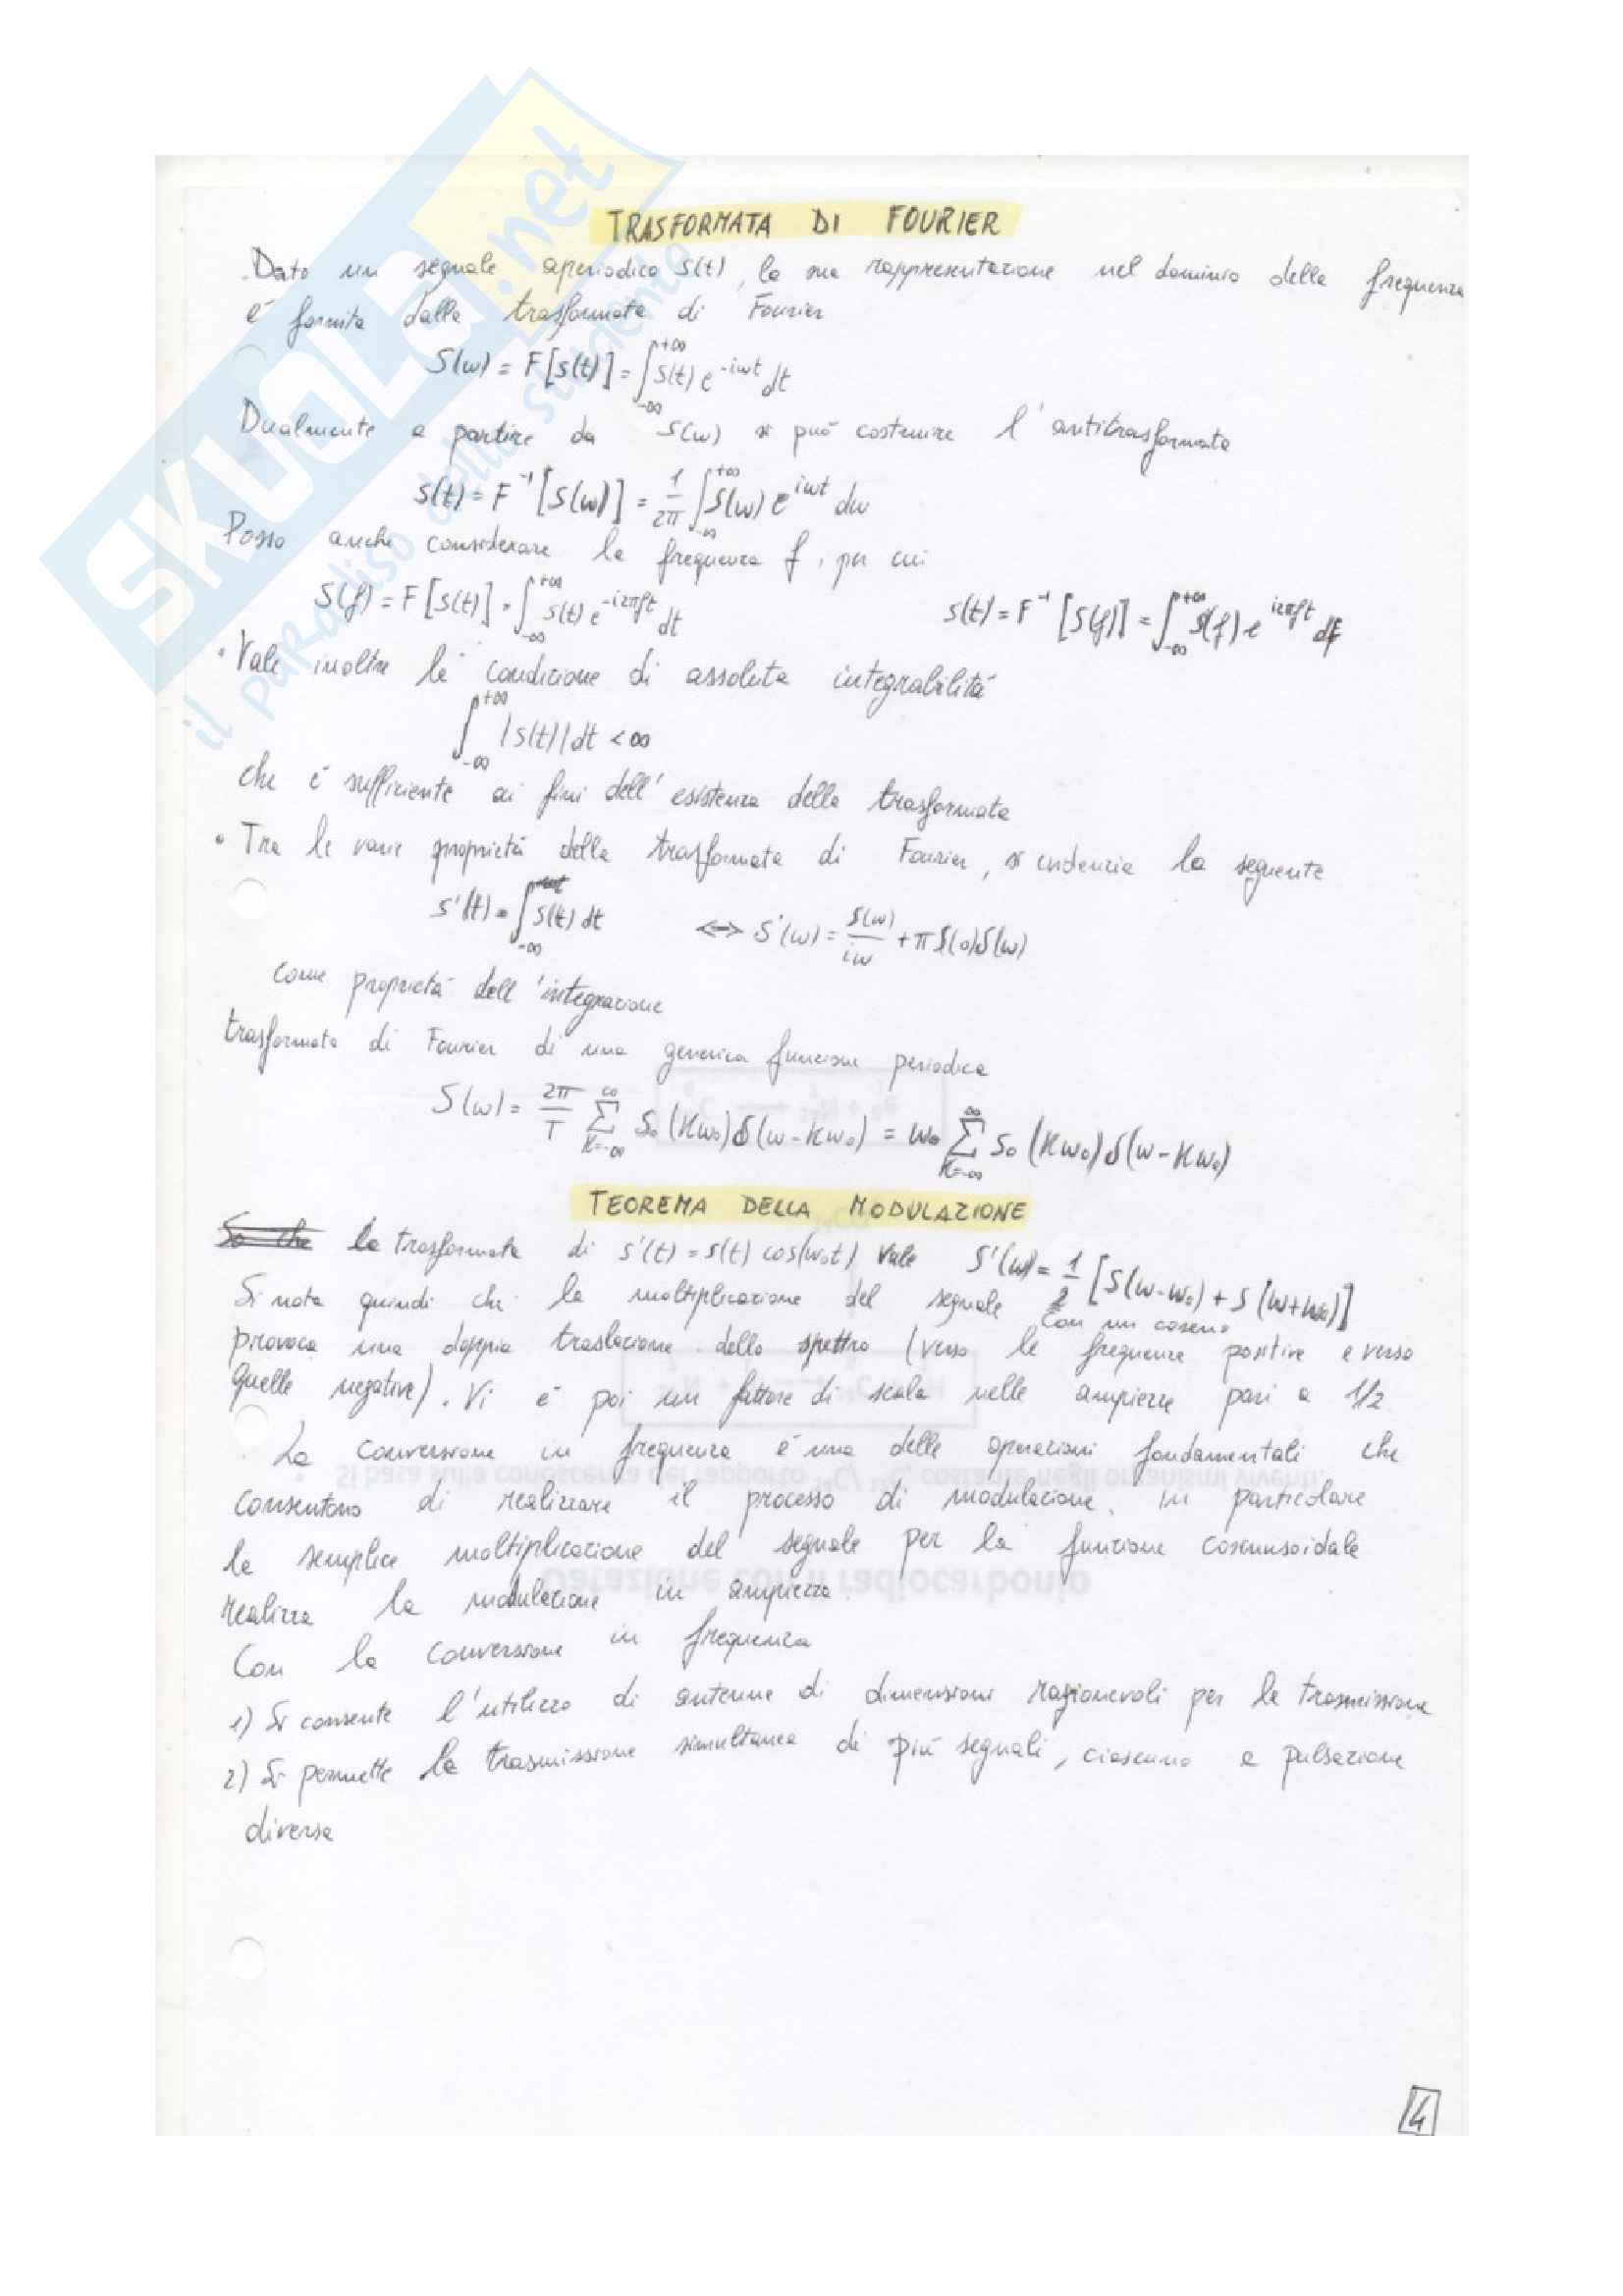 TRASFORMATA DI FOURIER
Dato un segnale aperiodico s(t), la sua rappresentazione nel dominio della frequenza
è fornita dalla trasformata di Fourier
S(ω) = F[s(t)] = ∫_{-∞}^{+∞} s(t) e^{-iωt} dt
Dualmente a partire da S(ω) si può costruire l'antitrasformata
s(t) = F^{-1}[S(ω)] = 1/2π ∫_{-∞}^{+∞} S(ω) e^{iωt} dω
Posso anche considerare la frequenza f, per cui
S(f) = F[s(t)] = ∫_{-∞}^{+∞} s(t) e^{-i2πft} dt    s(t) = F^{-1}[S(f)] = ∫_{-∞}^{+∞} S(f) e^{i2πft} df
• Vale inoltre la condizione di assoluta integrabilità
∫_{-∞}^{+∞} |s(t)| dt < ∞
che è sufficiente ai fini dell'esistenza della trasformata
• Tra le varie proprietà della trasformata di Fourier, si evidenzia la seguente
s'(t) = ∫_{-∞} s(t) dt <=> S'(ω) = S(ω)/iω + π S(0) δ(ω)
come proprietà dell'integrazione
trasformata di Fourier di una generica funzione periodica
S(ω) = 2π/T ∑_{K=-∞}^{∞} S₀(Kω₀) δ(ω-Kω₀) = ω₀ ∑_{K=-∞}^{∞} S₀(Kω₀) δ(ω-Kω₀)
TEOREMA DELLA MODULAZIONE
So che la trasformata di s'(t) = s(t) cos(ω₀t) vale S'(ω) = 1/2 [S(ω-ω₀) + S(ω+ω₀)]
Si nota quindi che la moltiplicazione del segnale con un coseno
provoca una doppia traslazione dello spettro (verso le frequenze positive e verso
quelle negative). Vi è poi un fattore di scala nelle ampiezze pari a 1/2
La conversione in frequenza è una delle operazioni fondamentali che
consentono di realizzare il processo di modulazione. In particolare
la semplice moltiplicazione del segnale per la funzione cosenusoidale
realizza la modulazione in ampiezza
Con la conversione in frequenza
1) Si consente l'utilizzo di antenne di dimensioni ragionevoli per la trasmissione
2) Si permette la trasmissione simultanea di più segnali, ciascuno a pulsazione
diversa
4
SKUOLA.net
il paradiso dello studente
Si basa sulla conoscenza del rapporto ¹⁴C/¹²C, costante negli organismi viventi.
Datazione con il radiocarbonio